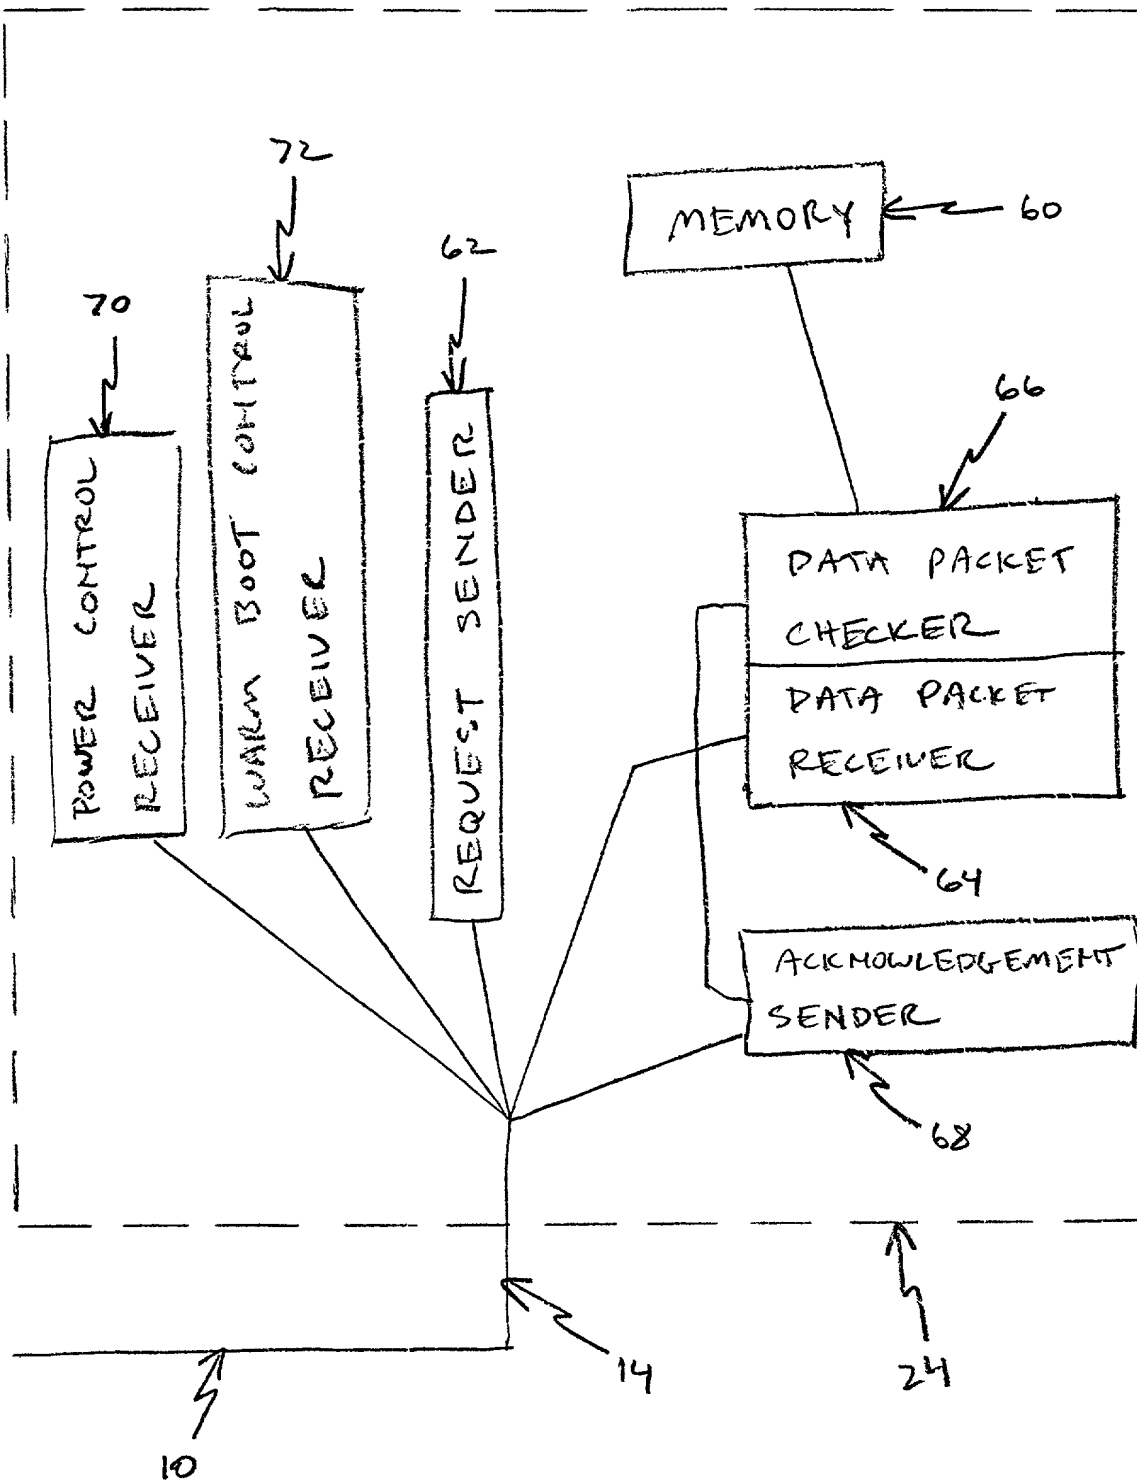 72
MEMORY
60
62
70
POWER CONTROL
RECEIVER
WARM BOOT CONTROL
RECEIVER
REQUEST SENDER
66
DATA PACKET
CHECKER
DATA PACKET
RECEIVER
64
ACKNOWLEDGEMENT
SENDER
68
14
24
10